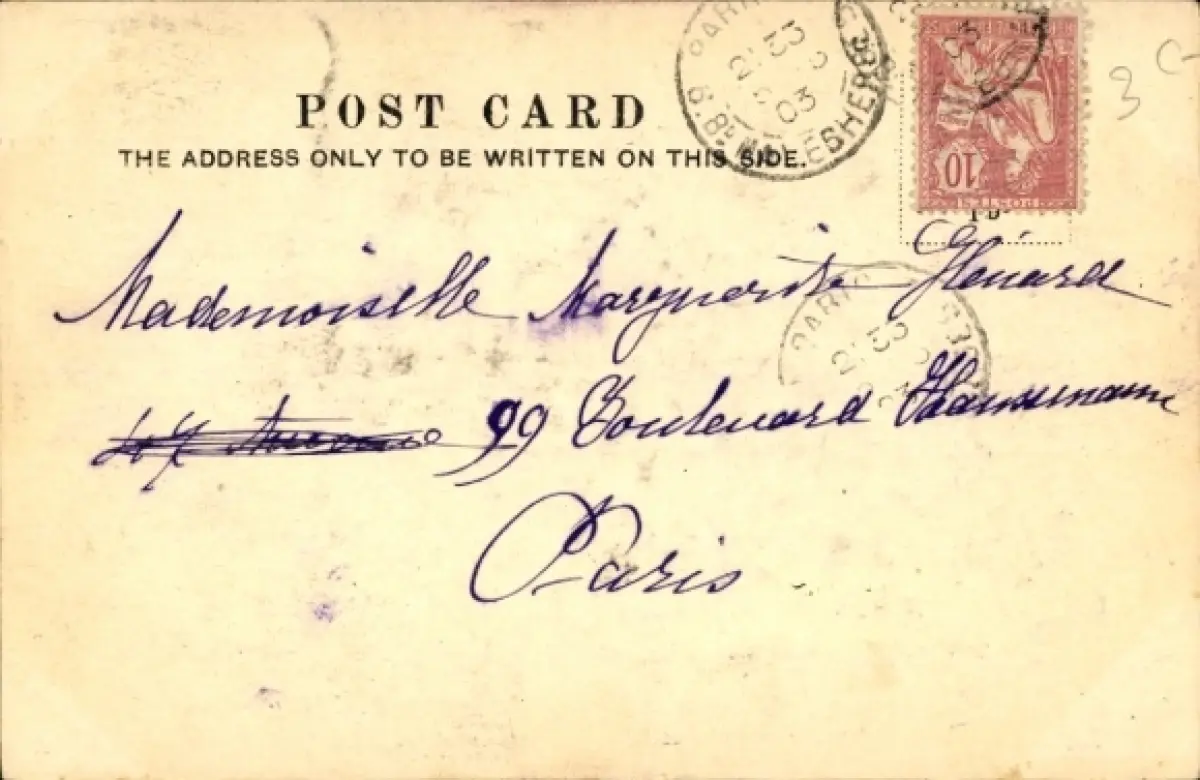 POST CARD
THE ADDRESS ONLY TO BE WRITTEN ON THIS SIDE.
PARIS
21 33
03
6. Bd MALESHERBES
10
POSTES
3
Mademoiselle Marguerite Glénard
99 Boulevard Haussmann
Paris